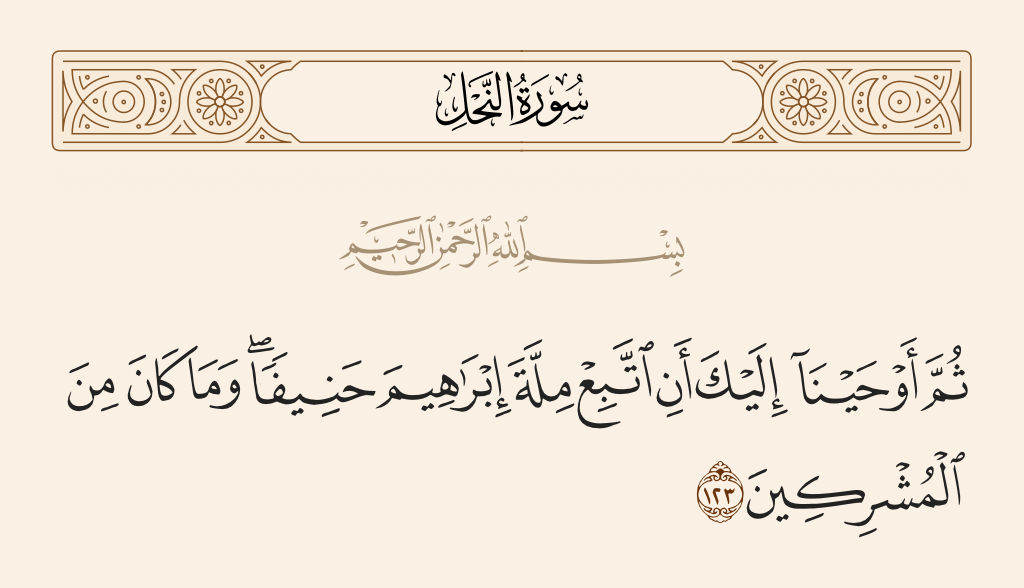 سُورَةُ النَّحْلِ
بِسْمِ ٱللَّهِ ٱلرَّحْمَٰنِ ٱلرَّحِيمِ
ثُمَّ أَوْحَيْنَآ إِلَيْكَ أَنِ ٱتَّبِعْ مِلَّةَ إِبْرَٰهِيمَ حَنِيفًۭا ۖ وَمَا كَانَ مِنَ
ٱلْمُشْرِكِينَ ١٢٣